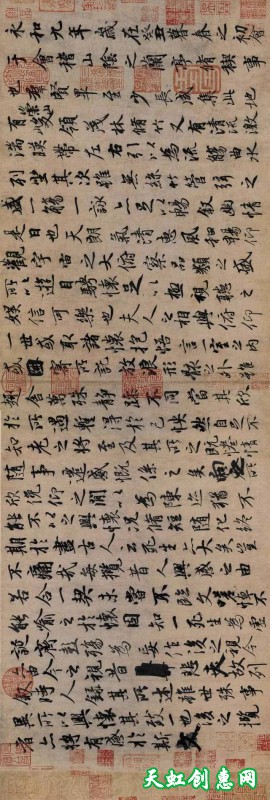 永和九年歲在癸丑暮春之初會
于會稽山陰之蘭亭脩稧事
也羣賢畢至少長咸集此地
有崇山峻領茂林脩竹又有清流激
湍暎帶左右引以為流觴曲水
列坐其次雖無絲竹管弦之
盛一觴一詠亦足以暢敘幽情
是日也天朗氣清惠風和暢仰
觀宇宙之大俯察品類之盛
所以遊目騁懷足以極視聽之
娛信可樂也夫人之相與俯仰
一世或取諸懷抱悟言一室之內
或因寄所託放浪形骸之外雖
趣舍萬殊靜躁不同當其欣
於所遇蹔得於己怏然自足不
知老之將至及其所之既惓情
隨事遷感慨係之矣向之所
欣俛仰之閒以為陳迹猶不
能不以之興懷況脩短隨化終
期於盡古人云死生亦大矣豈
不痛哉每攬昔人興感之由
若合一契未嘗不臨文嗟悼不
能喻之於懷固知一死生為虛
誕齊彭殤為妄作後之視今
亦由今之視昔悲夫故列
敘時人錄其所述雖世殊事
異所以興懷其致一也後之攬
者亦將有感於斯文
天虹创惠网